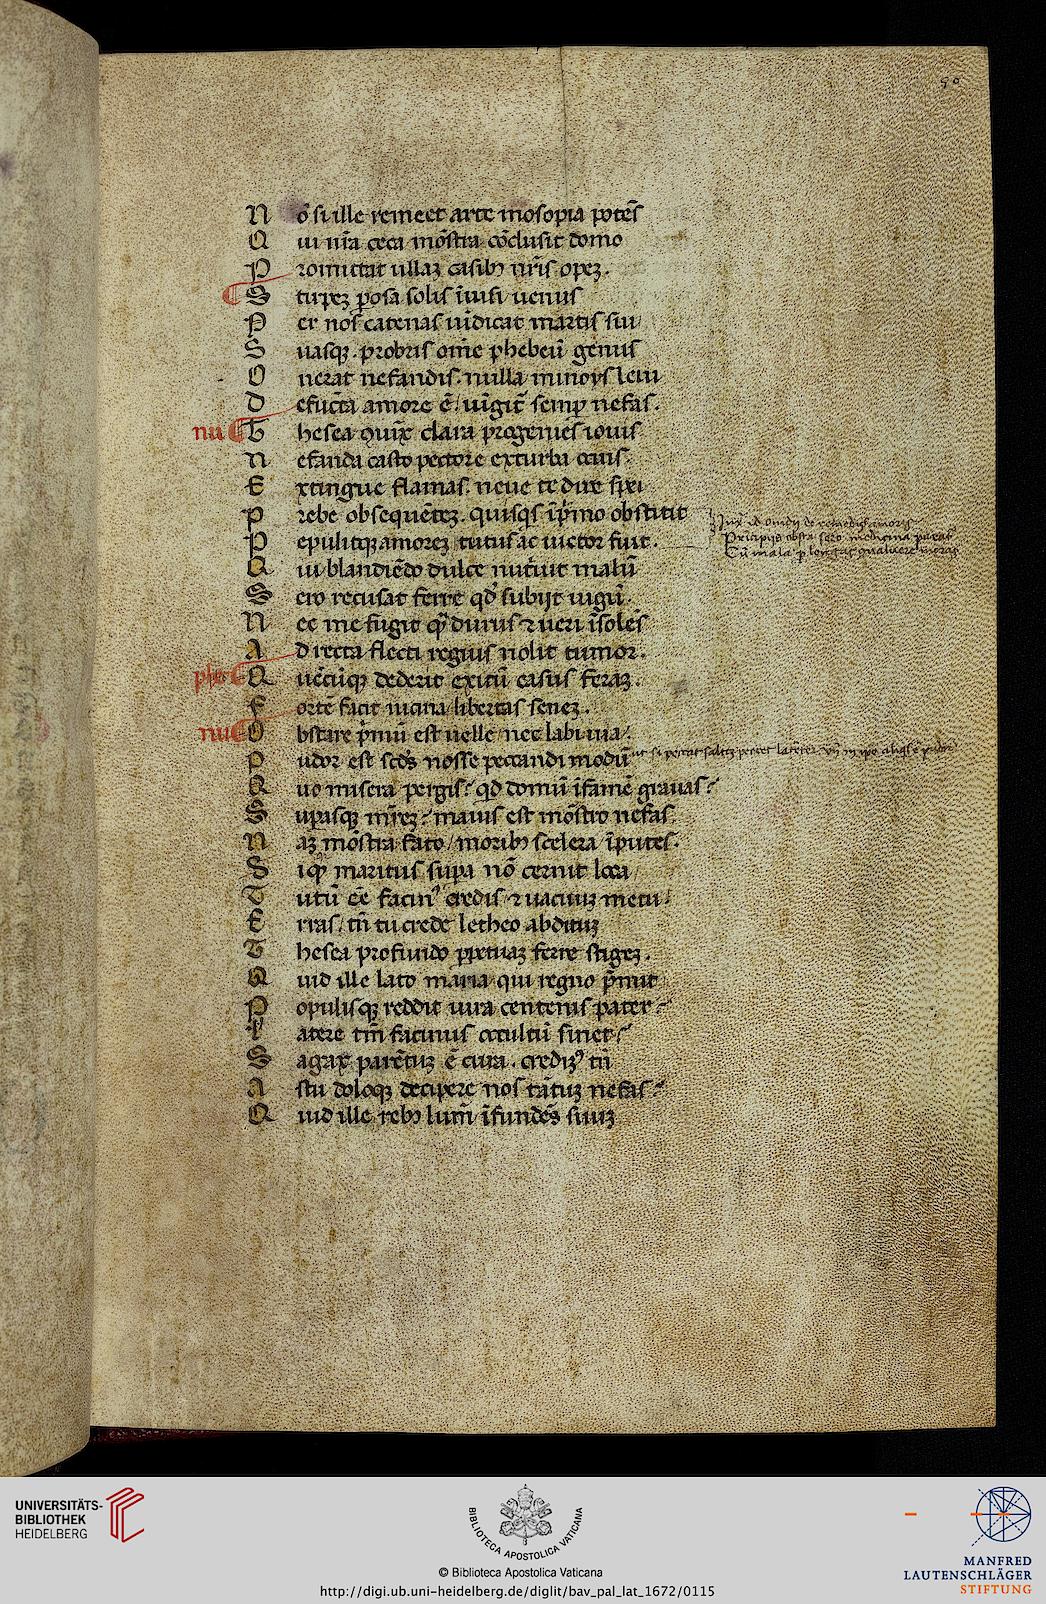 50
Nō si ille remeet arte mosopia potēs
Qui nr̄a ceca mōstra cōclusit domo
Promittat ullaꝫ casibꝫ nr̄is opeꝫ.
Stirpeꝫ ꝑosa solis ī uisi uenus
Per nos catenas uīdicat martis sui
Suasqꝫ. probris om̄e phebeū genus
Onerat nefandis. nulla minoys leui
Defūcta amore ē / iūgit̄ semp nefas.
nu Thesea ɔiūx clara progenies iouis
Nefanda casto pectore exturba ocius.
Extingue flamas. neue te dire spei
Prebe obsequēteꝫ. quisqs ī pͥmo obstitit
Pepulitqꝫ amoreꝫ tutus ac uictor fuit.
Qui blandiēdo dulce nutriuit malū
Sero recusat ferre qd̛ subijt iugū.
Nec me fugit qͣ durus ⁊ ueri īsolēs
Ad recta flecti regius nolit tumor.
phe Quēcūqꝫ dederit exitū casus feraꝫ.
Fortē facit uicina libertas seneꝫ.
nu Obstare pͥmū est uelle / nec labi uia /.
Pudor est scd̛s nosse peccandi modū
Quo misera pergis? qd domū īfamē grauas?
Supasqꝫ mr̄eꝫ? maius est mōstro nefas
Naꝫ mōstra fato / moribꝫ scelera īputes.
Si qͥꝫ maritus supa nō cernit loca
Tutū ēe facinꝰ credis / ⁊ uacuuꝫ metu.
Erras / tn̄ tu crede letheo abdituꝫ
Thesea profundo ppetuaꝫ ferre stigeꝫ.
Quid ille lato maria qui regno pͥmit
Populisqꝫ reddit iura centenis pater?
Latere tm̄ facinus occultū sinet?
Sagax parētuꝫ ē cura. crediꝫꝰ tn̄
Astu doloqꝫ decipere nos tātuꝫ nefas?
Quid ille rebꝫ lum̄ īfundēs suuꝫ
Iux̄ id ouidij de remedijs amoris
Principijs obsta sero medicina parat̄
Cū mala p longas
UNIVERSITÄTS-
BIBLIOTHEK
HEIDELBERG
BIBLIOTECA APOSTOLICA VATICANA
© Biblioteca Apostolica Vaticana
http://digi.ub.uni-heidelberg.de/diglit/bav_pal_lat_1672/0115
MANFRED
LAUTENSCHLÄGER
STIFTUNG